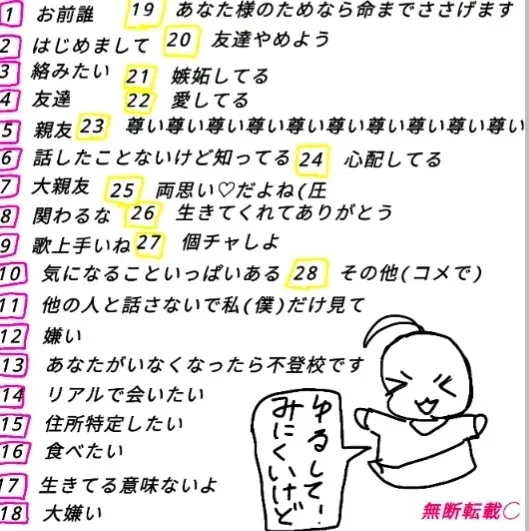 1 お前誰
2 はじめまして
3 絡みたい
4 友達
5 親友
6 話したことないけど知ってる
7 大親友
8 関わるな
9 歌上手いね
10 気になることいっぱいある
11 他の人と話さないで私(僕)だけ見て
12 嫌い
13 あなたがいなくなったら不登校です
14 リアルで会いたい
15 住所特定したい
16 食べたい
17 生きてる意味ないよ
18 大嫌い
19 あなた様のためなら命までささげます
20 友達やめよう
21 嫉妬してる
22 愛してる
23 尊い尊い尊い尊い尊い尊い尊い尊い尊い尊い
24 心配してる
25 両思い♡だよね(圧
26 生きてくれてありがとう
27 個チャしよ
28 その他(コメで)
ゆるしてー
みにくいけど
無断転載〇